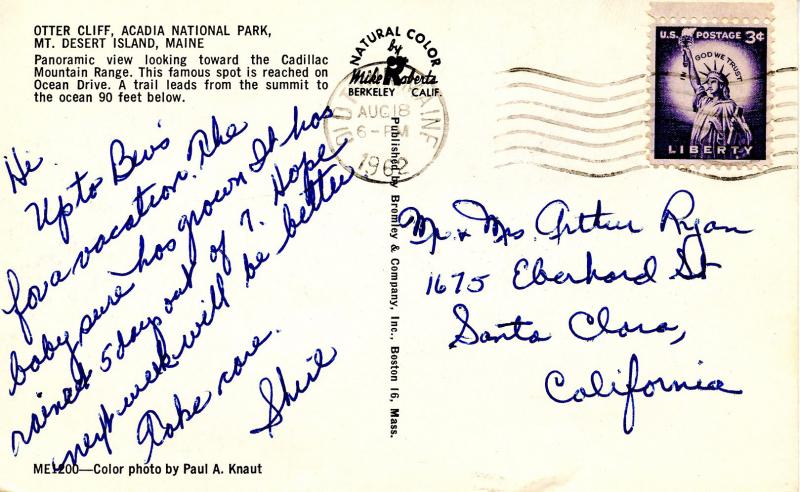 OTTER CLIFF, ACADIA NATIONAL PARK,
MT. DESERT ISLAND, MAINE
Panoramic view looking toward the Cadillac
Mountain Range. This famous spot is reached on
Ocean Drive. A trail leads from the summit to
the ocean 90 feet below.
Hi
Up to Bev's
for a vacation. The
baby sure has grown. It has
rained 5 days out of 7. Hope
next week will be better
Take care.
Shirl
ME1200—Color photo by Paul A. Knaut
NATURAL COLOR
by
Mike Roberts
BERKELEY CALIF.
Published by Bromley & Company, Inc., Boston 16, Mass.
MAINE
AUG 18
6-PM
1962
U.S. POSTAGE 3¢
IN GOD WE TRUST
LIBERTY
Mr. & Mrs. Arthur Ryan
1675 Eberhard St
Santa Clara,
California